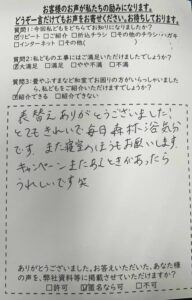 お客様のお声が私たちの励みになります。
どうぞ一言だけでもお声をお寄せください。お待ちしております。
質問1:今回私どもをどちらでお知りになりましたか?
☑リピート □ご紹介 □折込チラシ □その他のチラシ・ハガキ
□インターネット □その他( )
質問2:私どもの工事にはご満足いただけましたでしょうか?
☑大満足 □満足 □やや不満 □不満
質問3:畳やふすまなど和室でお困りの方がいらっしゃいましたら、私どもをご紹介いただけますか?
☑紹介できる □紹介できない
表替えありがとうございました。
とてもきれいで毎日森林浴気分
です。また寝室のほうもお願いします。
キャンペーンまたあしときがあったら
うれしいです笑
ありがとうございました。お答えいただいた、あなた様
の声を、弊社資料等に掲載させていただけますか?
□許可 ☑匿名なら可 □不可